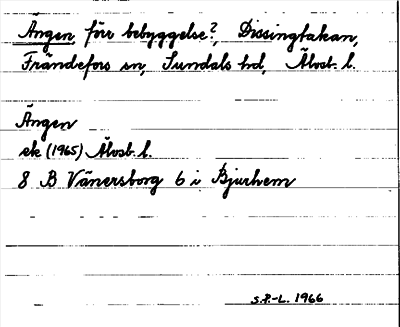 Ängen, förr bebyggelse?, Dissingtakan,
Frändefors sn, Sundals hd, Älvsb. l.
Ängen
ek (1965) Älvsb. l.
8 B Vänersborg 6 i Bjurhem
S.P.-L. 1966